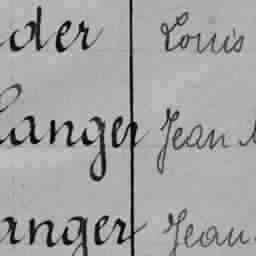 der Louis
langer Jean
anger Jean